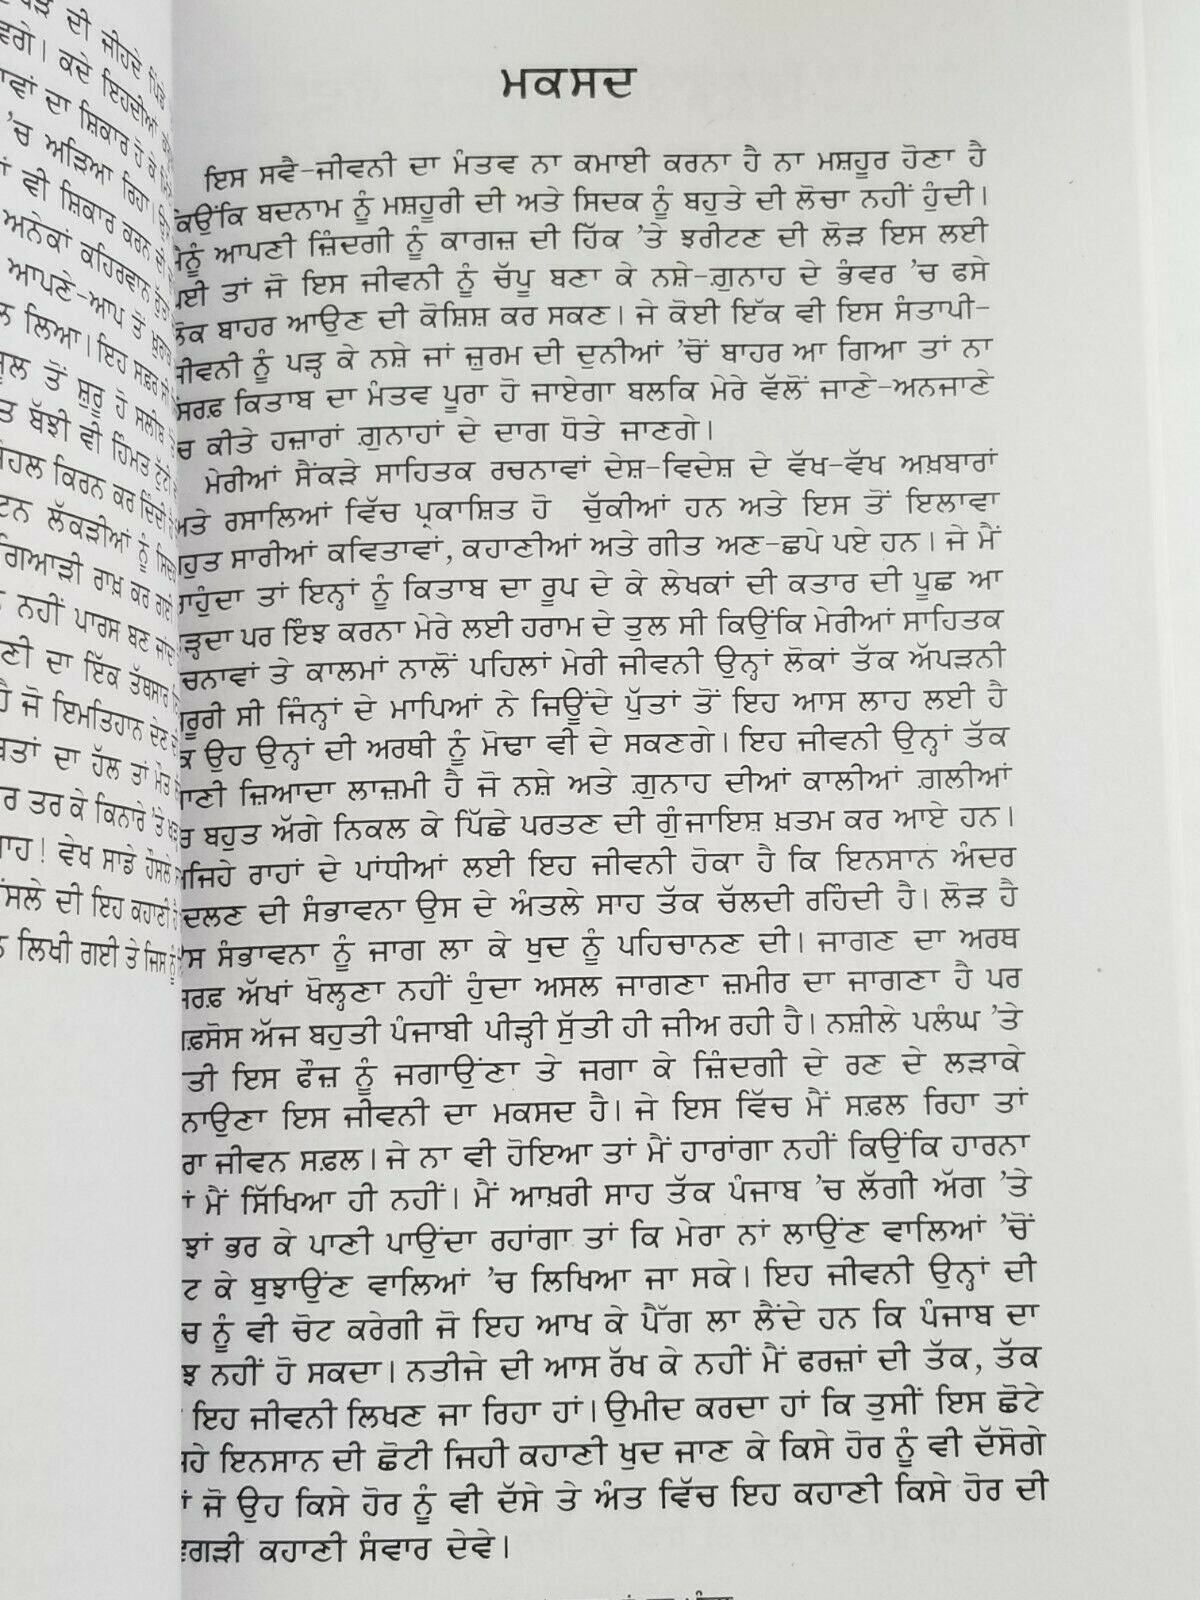 ਪਿੰਡੇ
ਦੀ ਜੀਹਦੇ
ਕਦੇ ਇਹਦੀਆਂ
ਦਾ ਸ਼ਿਕਾਰ ਹੋ ਕੇ
'ਚ ਅੜਿਆ ਰਿਹਾ।
ਵੀ ਸ਼ਿਕਾਰ ਕਰਨ ਦੀ
ਅਨੇਕਾਂ ਕਹਿਰਵਾਨ
ਆਪਣੇ-ਆਪ ਤੋਂ
ਲਿਆ। ਇਹ ਸਫ਼ਰ ਸੀ
ਤੋਂ ਸ਼ੁਰੂ ਹੋ ਸਲੀਬ
ਬੱਝੀ ਵੀ ਹਿੰਮਤ ਟੁੱਟੀ
ਕਿਰਨ ਕਰ ਦਿੰਦੀ ਹੈ
ਲੱਕੜੀਆਂ ਨੂੰ
ਰਾਖ਼ ਕਰ ਗਈ
ਨਹੀਂ ਪਾਰਸ ਬਣ ਜਾਂਦਾ
ਦਾ ਇੱਕ ਤੱਥਸਾਰ
ਹੈ ਜੋ ਇਮਤਿਹਾਨ ਦੇਣ
ਦਾ ਹੱਲ ਤਾਂ ਮੌਤ
ਤਰ ਕੇ ਕਿਨਾਰੇ 'ਤੇ
ਵੇਖ ਸਾਡੇ ਹੌਸਲੇ
ਦੀ ਇਹ ਕਹਾਣੀ ਹੈ
ਲਿਖੀ ਗਈ ਤੇ ਜਿਸ ਨੂੰ
ਮਕਸਦ
ਇਸ ਸਵੈ-ਜੀਵਨੀ ਦਾ ਮੰਤਵ ਨਾ ਕਮਾਈ ਕਰਨਾ ਹੈ ਨਾ ਮਸ਼ਹੂਰ ਹੋਣਾ ਹੈ
ਕਿਉਂਕਿ ਬਦਨਾਮ ਨੂੰ ਮਸ਼ਹੂਰੀ ਦੀ ਅਤੇ ਸਿਦਕ ਨੂੰ ਬਹੁਤੇ ਦੀ ਲੋਚਾ ਨਹੀਂ ਹੁੰਦੀ।
ਮੈਨੂੰ ਆਪਣੀ ਜ਼ਿੰਦਗੀ ਨੂੰ ਕਾਗਜ਼ ਦੀ ਹਿੱਕ 'ਤੇ ਝਰੀਟਣ ਦੀ ਲੋੜ ਇਸ ਲਈ
ਪਈ ਤਾਂ ਜੋ ਇਸ ਜੀਵਨੀ ਨੂੰ ਚੱਪੂ ਬਣਾ ਕੇ ਨਸ਼ੇ-ਗੁਨਾਹ ਦੇ ਭੰਵਰ 'ਚ ਫਸੇ
ਲੋਕ ਬਾਹਰ ਆਉਣ ਦੀ ਕੋਸ਼ਿਸ਼ ਕਰ ਸਕਣ। ਜੇ ਕੋਈ ਇੱਕ ਵੀ ਇਸ ਸੰਤਾਪੀ-
ਜੀਵਨੀ ਨੂੰ ਪੜ੍ਹ ਕੇ ਨਸ਼ੇ ਜਾਂ ਜ਼ੁਰਮ ਦੀ ਦੁਨੀਆਂ 'ਚੋਂ ਬਾਹਰ ਆ ਗਿਆ ਤਾਂ ਨਾ
ਸਿਰਫ਼ ਕਿਤਾਬ ਦਾ ਮੰਤਵ ਪੂਰਾ ਹੋ ਜਾਏਗਾ ਬਲਕਿ ਮੇਰੇ ਵੱਲੋਂ ਜਾਣੇ-ਅਨਜਾਣੇ
ਚ ਕੀਤੇ ਹਜ਼ਾਰਾਂ ਗ਼ੁਨਾਹਾਂ ਦੇ ਦਾਗ ਧੋਤੇ ਜਾਣਗੇ।
ਮੇਰੀਆਂ ਸੈਂਕੜੇ ਸਾਹਿਤਕ ਰਚਨਾਵਾਂ ਦੇਸ਼-ਵਿਦੇਸ਼ ਦੇ ਵੱਖ-ਵੱਖ ਅਖ਼ਬਾਰਾਂ
ਅਤੇ ਰਸਾਲਿਆਂ ਵਿੱਚ ਪ੍ਰਕਾਸ਼ਿਤ ਹੋ ਚੁੱਕੀਆਂ ਹਨ ਅਤੇ ਇਸ ਤੋਂ ਇਲਾਵਾ
ਬਹੁਤ ਸਾਰੀਆਂ ਕਵਿਤਾਵਾਂ, ਕਹਾਣੀਆਂ ਅਤੇ ਗੀਤ ਅਣ-ਛਪੇ ਪਏ ਹਨ। ਜੇ ਮੈਂ
ਚਾਹੁੰਦਾ ਤਾਂ ਇਨ੍ਹਾਂ ਨੂੰ ਕਿਤਾਬ ਦਾ ਰੂਪ ਦੇ ਕੇ ਲੇਖਕਾਂ ਦੀ ਕਤਾਰ ਦੀ ਪੂਛ ਆ
ਪਰ ਇੰਝ ਕਰਨਾ ਮੇਰੇ ਲਈ ਹਰਾਮ ਦੇ ਤੁਲ ਸੀ ਕਿਉਂਕਿ ਮੇਰੀਆਂ ਸਾਹਿਤਕ
ਰਚਨਾਵਾਂ ਤੇ ਕਾਲਮਾਂ ਨਾਲੋਂ ਪਹਿਲਾਂ ਮੇਰੀ ਜੀਵਨੀ ਉਨ੍ਹਾਂ ਲੋਕਾਂ ਤੱਕ ਅੱਪੜਨੀ
ਜ਼ਰੂਰੀ ਸੀ ਜਿੰਨ੍ਹਾਂ ਦੇ ਮਾਪਿਆਂ ਨੇ ਜਿਊਂਦੇ ਪੁੱਤਾਂ ਤੋਂ ਇਹ ਆਸ ਲਾਹ ਲਈ ਹੈ
ਕਿ ਉਹ ਉਨ੍ਹਾਂ ਦੀ ਅਰਥੀ ਨੂੰ ਮੋਢਾ ਵੀ ਦੇ ਸਕਣਗੇ। ਇਹ ਜੀਵਨੀ ਉਨ੍ਹਾਂ ਤੱਕ
ਜਾਣੀ ਜ਼ਿਆਦਾ ਲਾਜ਼ਮੀ ਹੈ ਜੋ ਨਸ਼ੇ ਅਤੇ ਗ਼ੁਨਾਹ ਦੀਆਂ ਕਾਲੀਆਂ ਗ਼ਲੀਆਂ
ਚ ਬਹੁਤ ਅੱਗੇ ਨਿਕਲ ਕੇ ਪਿੱਛੇ ਪਰਤਣ ਦੀ ਗੁੰਜਾਇਸ਼ ਖ਼ਤਮ ਕਰ ਆਏ ਹਨ।
ਅਜਿਹੇ ਰਾਹਾਂ ਦੇ ਪਾਂਧੀਆਂ ਲਈ ਇਹ ਜੀਵਨੀ ਹੋਕਾ ਹੈ ਕਿ ਇਨਸਾਨ ਅੰਦਰ
ਬਦਲਣ ਦੀ ਸੰਭਾਵਨਾ ਉਸ ਦੇ ਅੰਤਲੇ ਸਾਹ ਤੱਕ ਚੱਲਦੀ ਰਹਿੰਦੀ ਹੈ। ਲੋੜ ਹੈ
ਇਸ ਸੰਭਾਵਨਾ ਨੂੰ ਜਾਗ ਲਾ ਕੇ ਖੁਦ ਨੂੰ ਪਹਿਚਾਨਣ ਦੀ। ਜਾਗਣ ਦਾ ਅਰਥ
ਸਿਰਫ਼ ਅੱਖਾਂ ਖੋਲ੍ਹਣਾ ਨਹੀਂ ਹੁੰਦਾ ਅਸਲ ਜਾਗਣਾ ਜ਼ਮੀਰ ਦਾ ਜਾਗਣਾ ਹੈ ਪਰ
ਅਫ਼ਸੋਸ ਅੱਜ ਬਹੁਤੀ ਪੰਜਾਬੀ ਪੀੜ੍ਹੀ ਸੁੱਤੀ ਹੀ ਜੀਅ ਰਹੀ ਹੈ। ਨਸ਼ੀਲੇ ਪਲੰਘ 'ਤੇ
ਇਸ ਫੌਜ਼ ਨੂੰ ਜਗਾਉਂਣਾ ਤੇ ਜਗਾ ਕੇ ਜ਼ਿੰਦਗੀ ਦੇ ਰਣ ਦੇ ਲੜਾਕੇ
ਇਸ ਜੀਵਨੀ ਦਾ ਮਕਸਦ ਹੈ। ਜੇ ਇਸ ਵਿੱਚ ਮੈਂ ਸਫ਼ਲ ਰਿਹਾ ਤਾਂ
ਜੀਵਨ ਸਫ਼ਲ। ਜੇ ਨਾ ਵੀ ਹੋਇਆ ਤਾਂ ਮੈਂ ਹਾਰਾਂਗਾ ਨਹੀਂ ਕਿਉਂਕਿ ਹਾਰਨਾ
ਮੈਂ ਸਿੱਖਿਆ ਹੀ ਨਹੀਂ। ਮੈਂ ਆਖ਼ਰੀ ਸਾਹ ਤੱਕ ਪੰਜਾਬ 'ਚ ਲੱਗੀ ਅੱਗ 'ਤੇ
ਭਰ ਕੇ ਪਾਣੀ ਪਾਉਂਦਾ ਰਹਾਂਗਾ ਤਾਂ ਕਿ ਮੇਰਾ ਨਾਂ ਲਾਉਂਣ ਵਾਲਿਆਂ 'ਚੋਂ
ਕੇ ਬੁਝਾਉਂਣ ਵਾਲਿਆਂ 'ਚ ਲਿਖਿਆ ਜਾ ਸਕੇ। ਇਹ ਜੀਵਨੀ ਉਨ੍ਹਾਂ ਦੀ
ਨੂੰ ਵੀ ਚੋਟ ਕਰੇਗੀ ਜੋ ਇਹ ਆਖ ਕੇ ਪੈੱਗ ਲਾ ਲੈਂਦੇ ਹਨ ਕਿ ਪੰਜਾਬ ਦਾ
ਨਹੀਂ ਹੋ ਸਕਦਾ। ਨਤੀਜੇ ਦੀ ਆਸ ਰੱਖ ਕੇ ਨਹੀਂ ਮੈਂ ਫਰਜ਼ਾਂ ਦੀ ਤੱਕ, ਤੱਕ
ਇਹ ਜੀਵਨੀ ਲਿਖਣ ਜਾ ਰਿਹਾ ਹਾਂ। ਉਮੀਦ ਕਰਦਾ ਹਾਂ ਕਿ ਤੁਸੀਂ ਇਸ ਛੋਟੇ
ਇਨਸਾਨ ਦੀ ਛੋਟੀ ਜਿਹੀ ਕਹਾਣੀ ਖੁਦ ਜਾਣ ਕੇ ਕਿਸੇ ਹੋਰ ਨੂੰ ਵੀ ਦੱਸੋਗੇ
ਜੋ ਉਹ ਕਿਸੇ ਹੋਰ ਨੂੰ ਵੀ ਦੱਸੇ ਤੇ ਅੰਤ ਵਿੱਚ ਇਹ ਕਹਾਣੀ ਕਿਸੇ ਹੋਰ ਦੀ
ਵਿਗੜੀ ਕਹਾਣੀ ਸੰਵਾਰ ਦੇਵੇ।